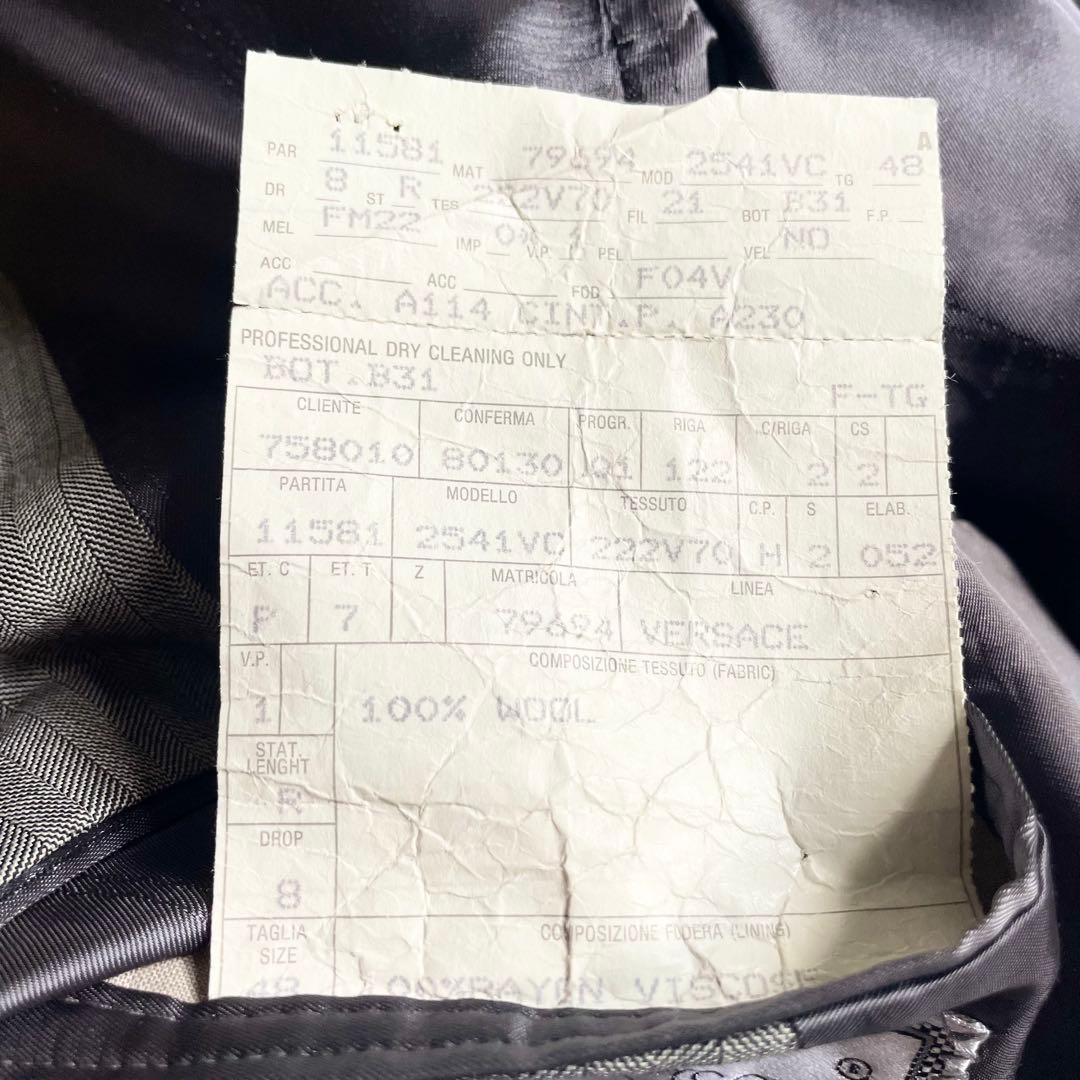 A
PAR 11581 MAT 79694 MOD 2541VC TG 48
DR 8 ST R TES 222V70 FIL 21 BOT B31 F.P.
MEL FM22 IMP V.P. PEL VEL NO
ACC ACC FOD F04V
ACC. A114 CINT.P. A230
PROFESSIONAL DRY CLEANING ONLY
BOT.B31 F-TG
CLIENTE CONFERMA PROGR. RIGA C/RIGA CS
758010 80130 01 122 2 2
PARTITA MODELLO TESSUTO C.P. S ELAB.
11581 2541VC 222V70 H 2 052
ET. C ET. T Z MATRICOLA LINEA
P 7 79694 VERSACE
V.P. COMPOSIZIONE TESSUTO (FABRIC)
1 100% WOOL
STAT.
LENGHT
R
DROP
8
TAGLIA COMPOSIZIONE FODERA (LINING)
SIZE
48 100%RAYON VISCOSE